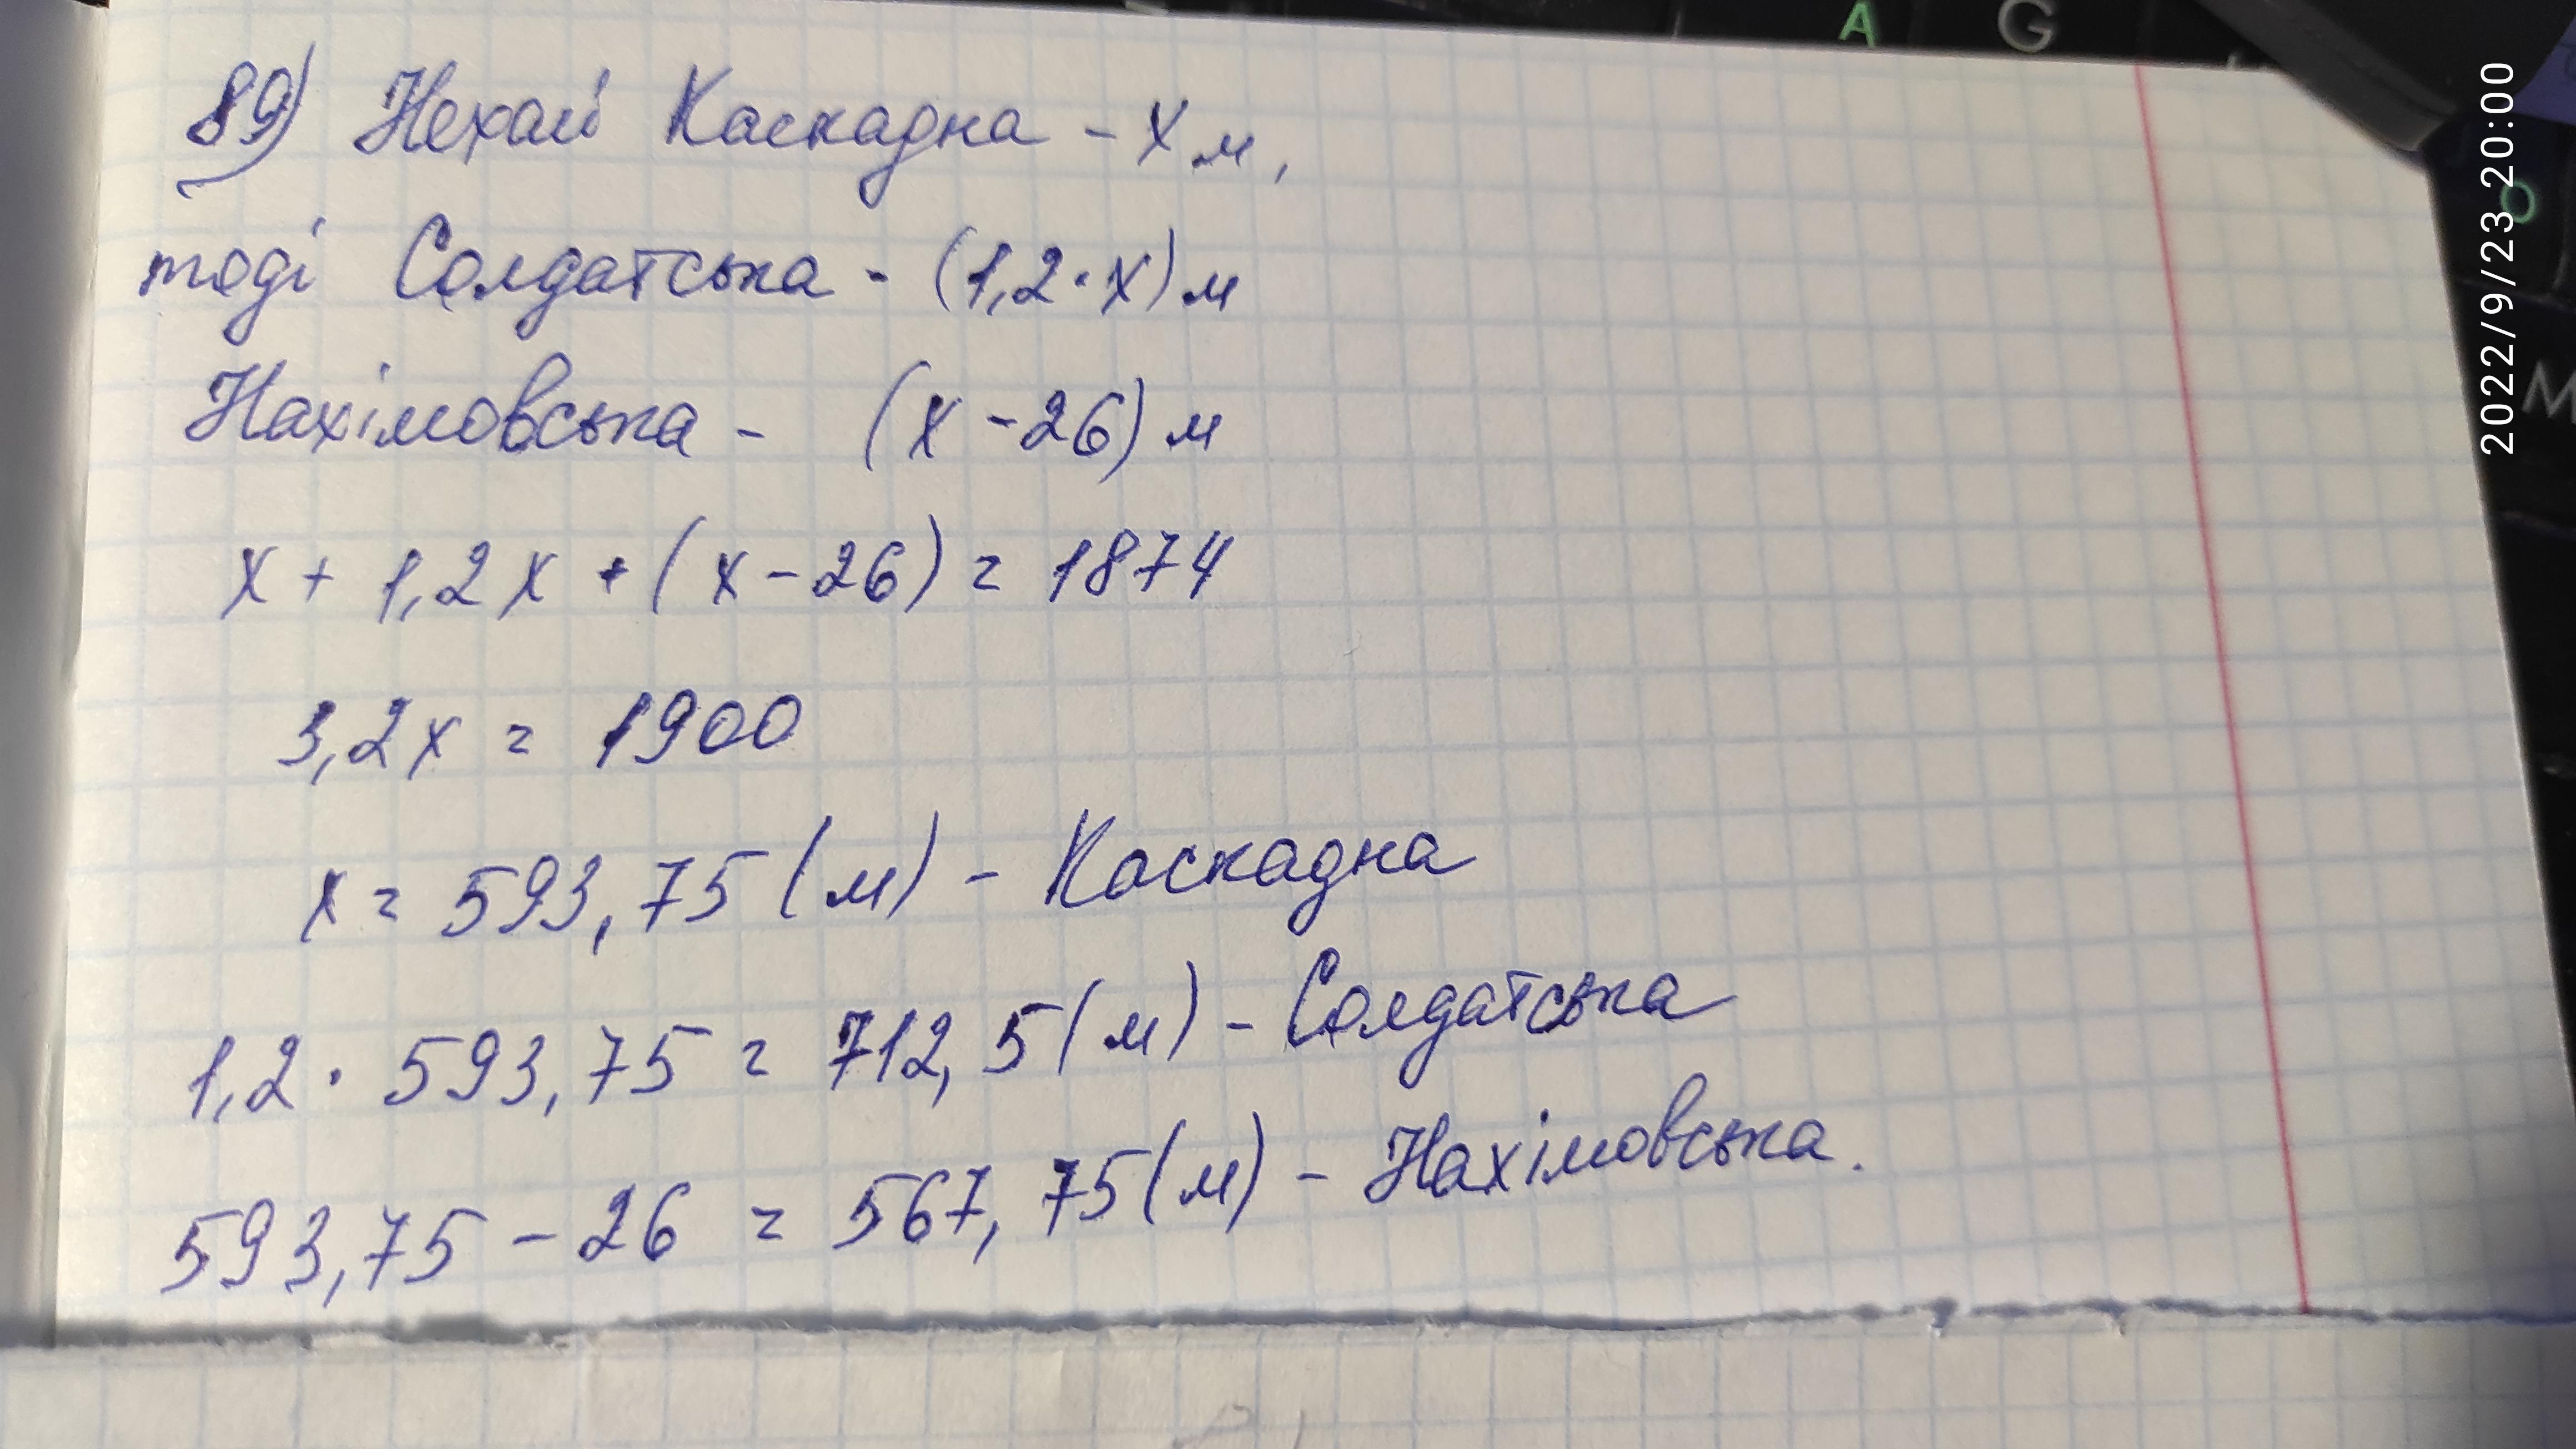 89) Нехай Каскадна - x м,
тоді Солдатська - (1,2·x) м
Нахімовська - (x - 26) м
x + 1,2x + (x - 26) = 1874
3,2x = 1900
x = 593,75 (м) - Каскадна
1,2 · 593,75 = 712,5 (м) - Солдатська
593,75 - 26 = 567,75 (м) - Нахімовська.
2022/9/23 20:00
A G
O
M